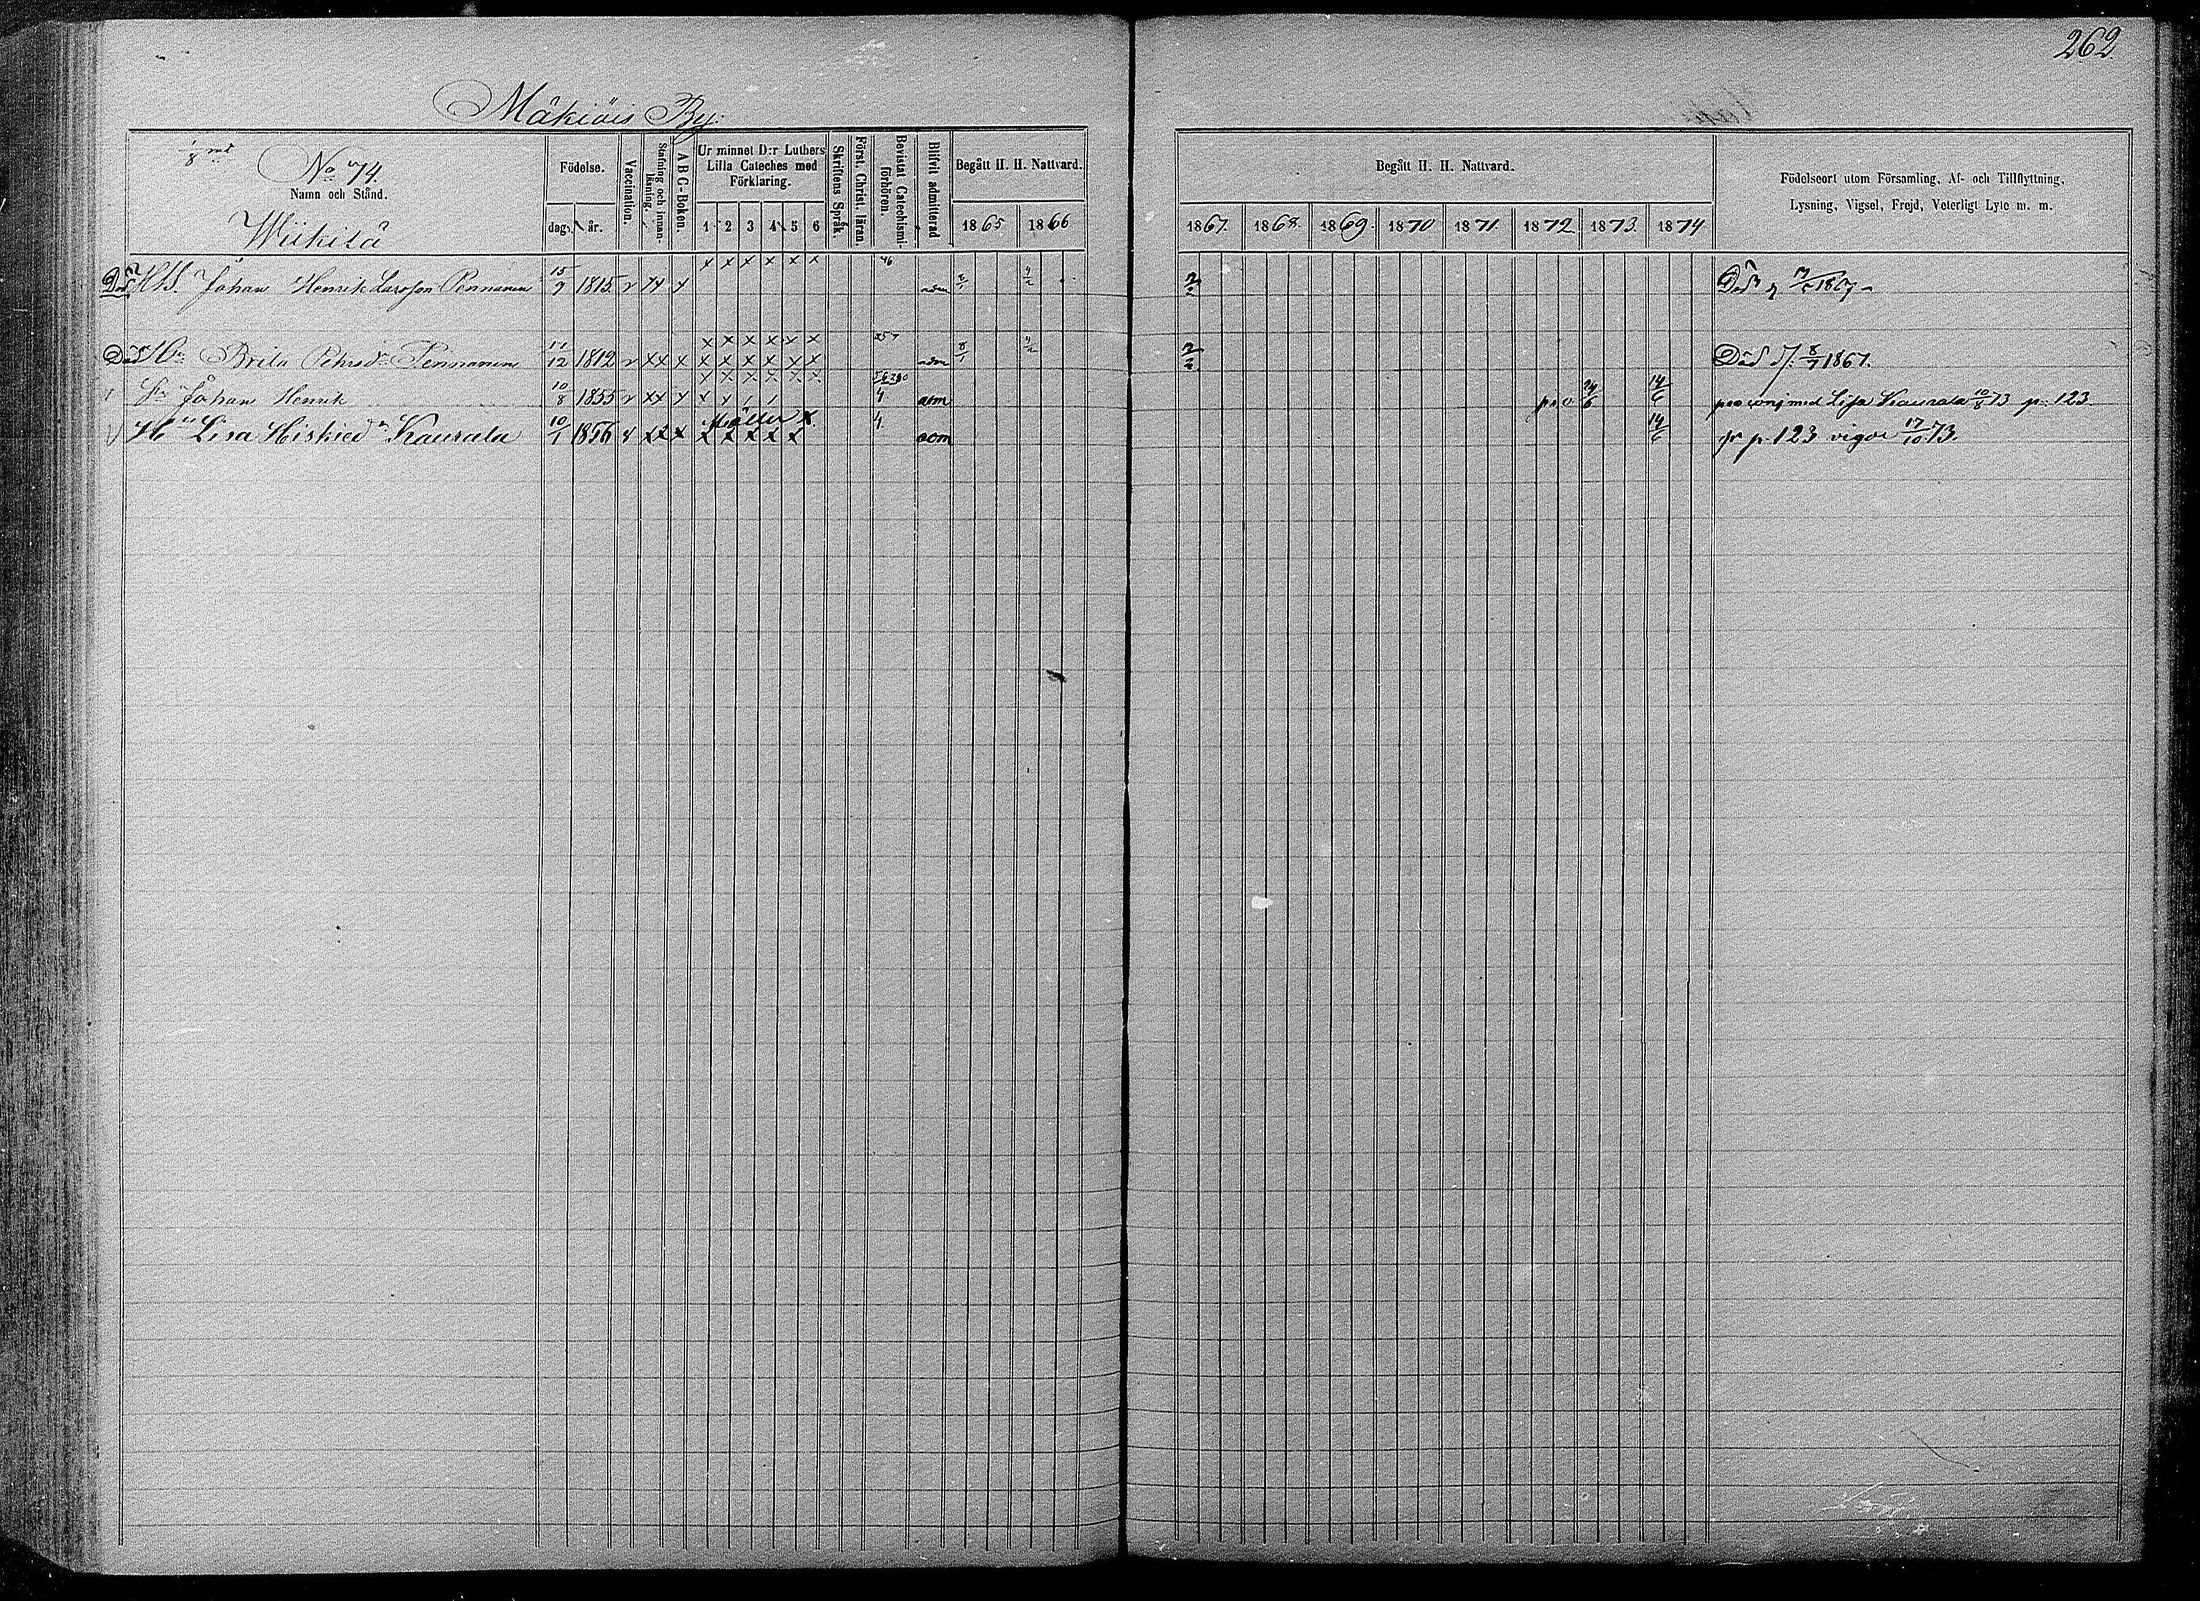 262
Mäkiäis By.
1/8 mtl
No 74.
Namn och Stånd.
Wiikilä
Födelse.
dag. år.
Vaccination.
Stafning och innanläsning.
A B C-Boken.
Ur minnet D:r Luthers Lilla Cateches med Förklaring.
1 2 3 4 5 6
Skriftens Språk.
Först. Christ. läran.
Bevistat Catechismiförhören.
Blifvit admitterad
Begått H. H. Nattvard.
1865 1866
Begått H. H. Nattvard.
1867. 1868. 1869. 1870 1871. 1872 1873. 1874
Födelseort utom Församling, Af- och Tillflyttning,
Lysning, Vigsel, Frejd, Veterligt Lyte m. m.
Död Johan Henrik Larsson Pennanen 15/9 1815. v xx x x x x x x x 46 adm 2/2 Död 1867
Död Hu Brita Pehrsdr Pennanen 11/12 1812 v xx x x x x x x x adm 2/2 Död d. 8/7 1867.
Sn Johan Henrik 10/8 1855 v xx x x x 4 adm 24/6 14/6 pro conj med Lisa Kaurala 10/8 73 p. 123.
Hu Lisa Hiskiedr Kaurala 10/1 1856 v xx x x x x x x 4. adm 14/6 fr p. 123 vigde 17/10 73.